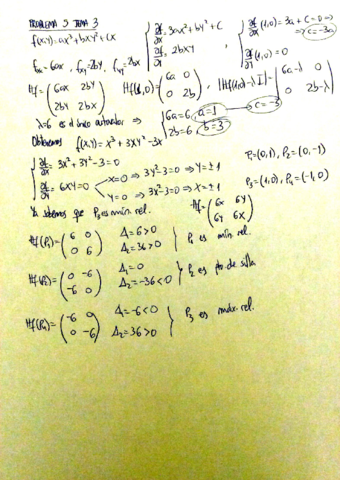 PROBLEMA 5 TEMA 3
f(x,y)=ax³+bxy²+cx
∂f/∂x=3ax²+by²+c
∂f/∂y=2bxy
∂f/∂x(1,0)=3a+c=0 ⇒ c=-3a
∂f/∂y(1,0)=0
fxx=6ax, fxy=2by, fyy=2bx
Hf=(6ax 2by
2by 2bx)
Hf(1,0)=(6a 0
0 2b)
|Hf(1,0)-λI|=(6a-λ 0
0 2b-λ)
λ=6 es el único autovalor ⇒ {6a=6 a=1 ⇒ c=-3
2b=6 b=3
Obtenemos f(x,y)=x³+3xy²-3x
∂f/∂x=3x²+3y²-3=0
∂f/∂y=6xy=0
x=0 ⇒ 3y²-3=0 ⇒ y=±1
y=0 ⇒ 3x²-3=0 ⇒ x=±1
P₁=(0,1), P₂=(0,-1)
P₃=(1,0), P₄=(-1,0)
Ya sabemos que P₃ es mín. rel.
Hf=(6x 6y
6y 6x)
Hf(P₁)=(6 0
0 6)
Δ₁=6>0
Δ₂=36>0
} P₁ es mín. rel.
Hf(P₂)=(0 -6
-6 0)
Δ₁=0
Δ₂=-36<0
} P₂ es pto. de silla
Hf(P₄)=(-6 0
0 -6)
Δ₁=-6<0
Δ₂=36>0
} P₃ es máx. rel.